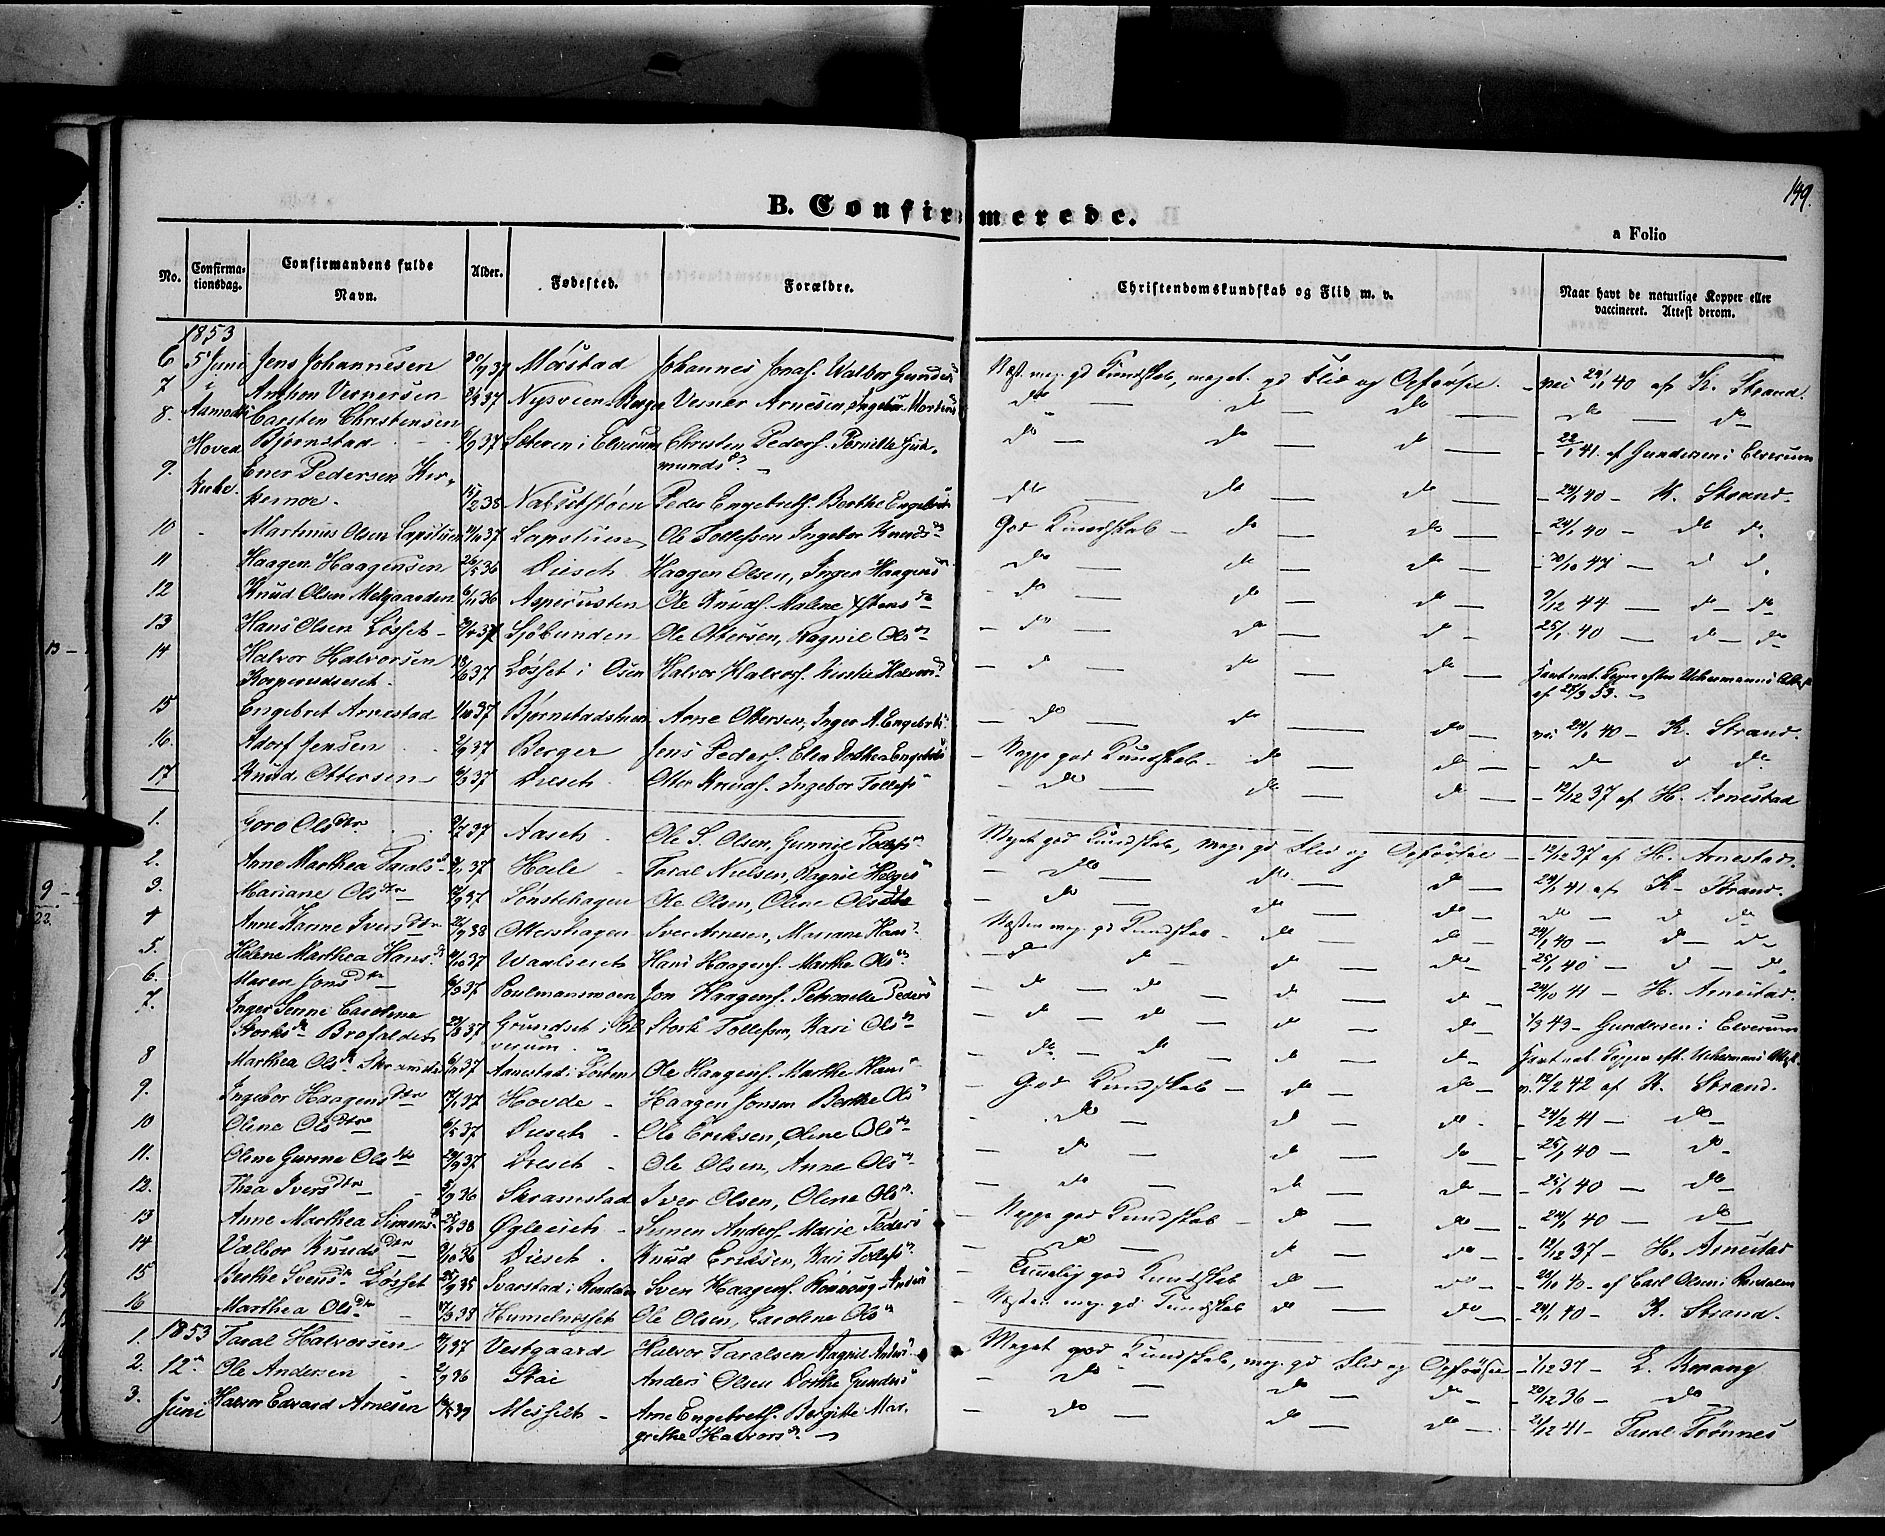 149.
B. Confirmerede.
a Folio
No. Confirma-tionsdag. Confirmandens fulde Navn. Alder. Fødested. Forældre. Christendomskundskab og Flid m. v. Naar havt de naturlige Kopper eller vaccineret. Attest derom.
1853
6 5te Juni Jens Johannesen 37 Mørstad Johannes Jonas. Walbor Gunders Kundskab, meget gd Flid og Opførsel. 40 af K. Strand.
7 Anthon Vernersen 37 Nysveen Berger Verner Arnesen, Ingebor Mortens do — do — do — do — do
8. Aamodts Carsten Christensen
Hoved Bjørnstad 37 i Elverum Christen Peders. Pernille Gud- do — do — do — 22/1 41. af Gundersen i Elverum
munds
9. Ener Pedersen Kir-
Kirke. kemoe. 15/2 38 Peder Engebreths. Berthe Engebrets do — do — do — 40 — K. Strand.
10 Martinus Olsen Lapstuen 37 Lapstuen Ole Tollefsen Ingebor Knuds God Kundskab — do — do — 24/1 40 — do do
11 Haagen Haagensen 36 Diesch Haagen Olsen, Inger Haagens do — do — do — 47 — d d.
12 Knud Olsen Melgaarden 6/11 36 Asperusten Ole Knuds. Malene do — do — do — 9/12 44 — do — do
13 Hans Olsen Løsset 37 Sjøbunden Ole Ottersen, Ragnil Ols do — do — do — 25/1 40 — d — do
14 Halvor Halvorsen 37 Løsset i Osen Halvor Halvors. Halvors — do — do — do havt nat. Kopper efter Uchermanns Attest
af 53.
15 Engebret Arnestad 37 Bjørnstadstuen Arne Ottersen, Inger A. Engebrets — do — do — do — 24/1 40 — K. Strand.
16. Adorf Jensen 37 Berger Jens Peders. Elea Dorthea Engebrets — Neppe god Kundskab — do — do — do d do
17 Knud Ottersen 37 Diesch Otter Knuds. Ingebor Tollefs — do — do — do — 12/12 37 af H. Arnestad
1. Goro Olsdtr 37 Aaseth Ole S. Olsen, Gunnil Tollefs Meget god Kundskab, meg. gd Flid og Opførsel — 12/12 37 af H. Arnestad.
2. Anne Marthea Tarals 37 Hole Taral Nielsen, Ragnil Helges — do — do — do — 24/1 41 af K. Strand
3. Mariane Olsdtr 37 Sønstehagen Ole Olsen, Oline Olsdtr — do — do — do — do — d do
4 Anne Karine Iversdtr 38 Ottershagen Iver Arnesen, Mariane Hans Næsten meg. gd Kundskab — do — do — 24/1 40 — d — do
5. Helene Marthea Hans. 37 Waalseth Hans Haagens. Marthe Ols — do do — do — do — 25/1 40 — d — do
6. Maren Jonsdtr 37 Poulmansmoen Jon Haagens. Petronelle Peders — do — do — do — do — 24/10 41 — H. Arnestad.
7. Inger Caroline
Storks Brofaldet 37 Grundset i El- Stork Tollefsen, Kari Ols — do — do — do — do — 1/3 43 — Gundersen i Elverum
verum
8 Marthea Ols Skramstad 37 Aanestad i Løiten Ole Haagens. Marthe Hans — do — do — do — do havt nat. Kopper eft. Uchermans Attest.
9. Ingebor Haagensdtr 37 Hovde Haagen Jonsen Berthe Ols — God Kundskab — do — do — 12/2 42 af K. Strand.
10 Oline Olsdtr 37 Diesch Ole Eriksen, Oline Ols — do — do — do — 24/2 41 — do
11. Oline Gurine Olsdtr 37 Diesch Ole Olsen, Anne Ols — do — do — do — 25/1 40 — do
12. Thea Iversdtr 36 Skramstad Iver Olsen, Oline Ols — do — do — do — 25/1 40 — do
13 Anne Marthea Simens 38 Øgleseth Simen Anders. Marie Peders — Neppe god Kundskab — do — do — 24/1 40 — do
14 Valbor Knudsdtr 36 Diesch Knud Eriksen, Kari Tollefs — do — do — do — 12/12 37 — H. Arnestad
15 Berthe Svens Løsset 35 Svarstad i Rendalen Sven Haagens. Ronnoug Anders — god Kundskab — do — do — 40. af Carl Olsen i Rendalen
16 Marthea Olsdtr 38 Humelnesset Ole Olsen, Caroline Ols — Næsten meg. gd Kundskab do — do — 24/1 40 — K. Strand.
1. 1853 Taral Halvorsen 37 Vestgaard Halvor Taralsen Ragnil Anders — Meget god Kundskab, meg. gd Flid og Opførsel — 1/12 37 — L. Brvang
2. 12te Ole Andersen 36 Stai Anders Olsen Dorthe Gunders — do — do — do — 20/12 36 — do
3. Juni Halvor Edvard Arnesen 39 Messelt Arne Engebreths. Bergitte Mar- — do — do — do — 21/12 41 — Taral Trønnes
grethe Halvors